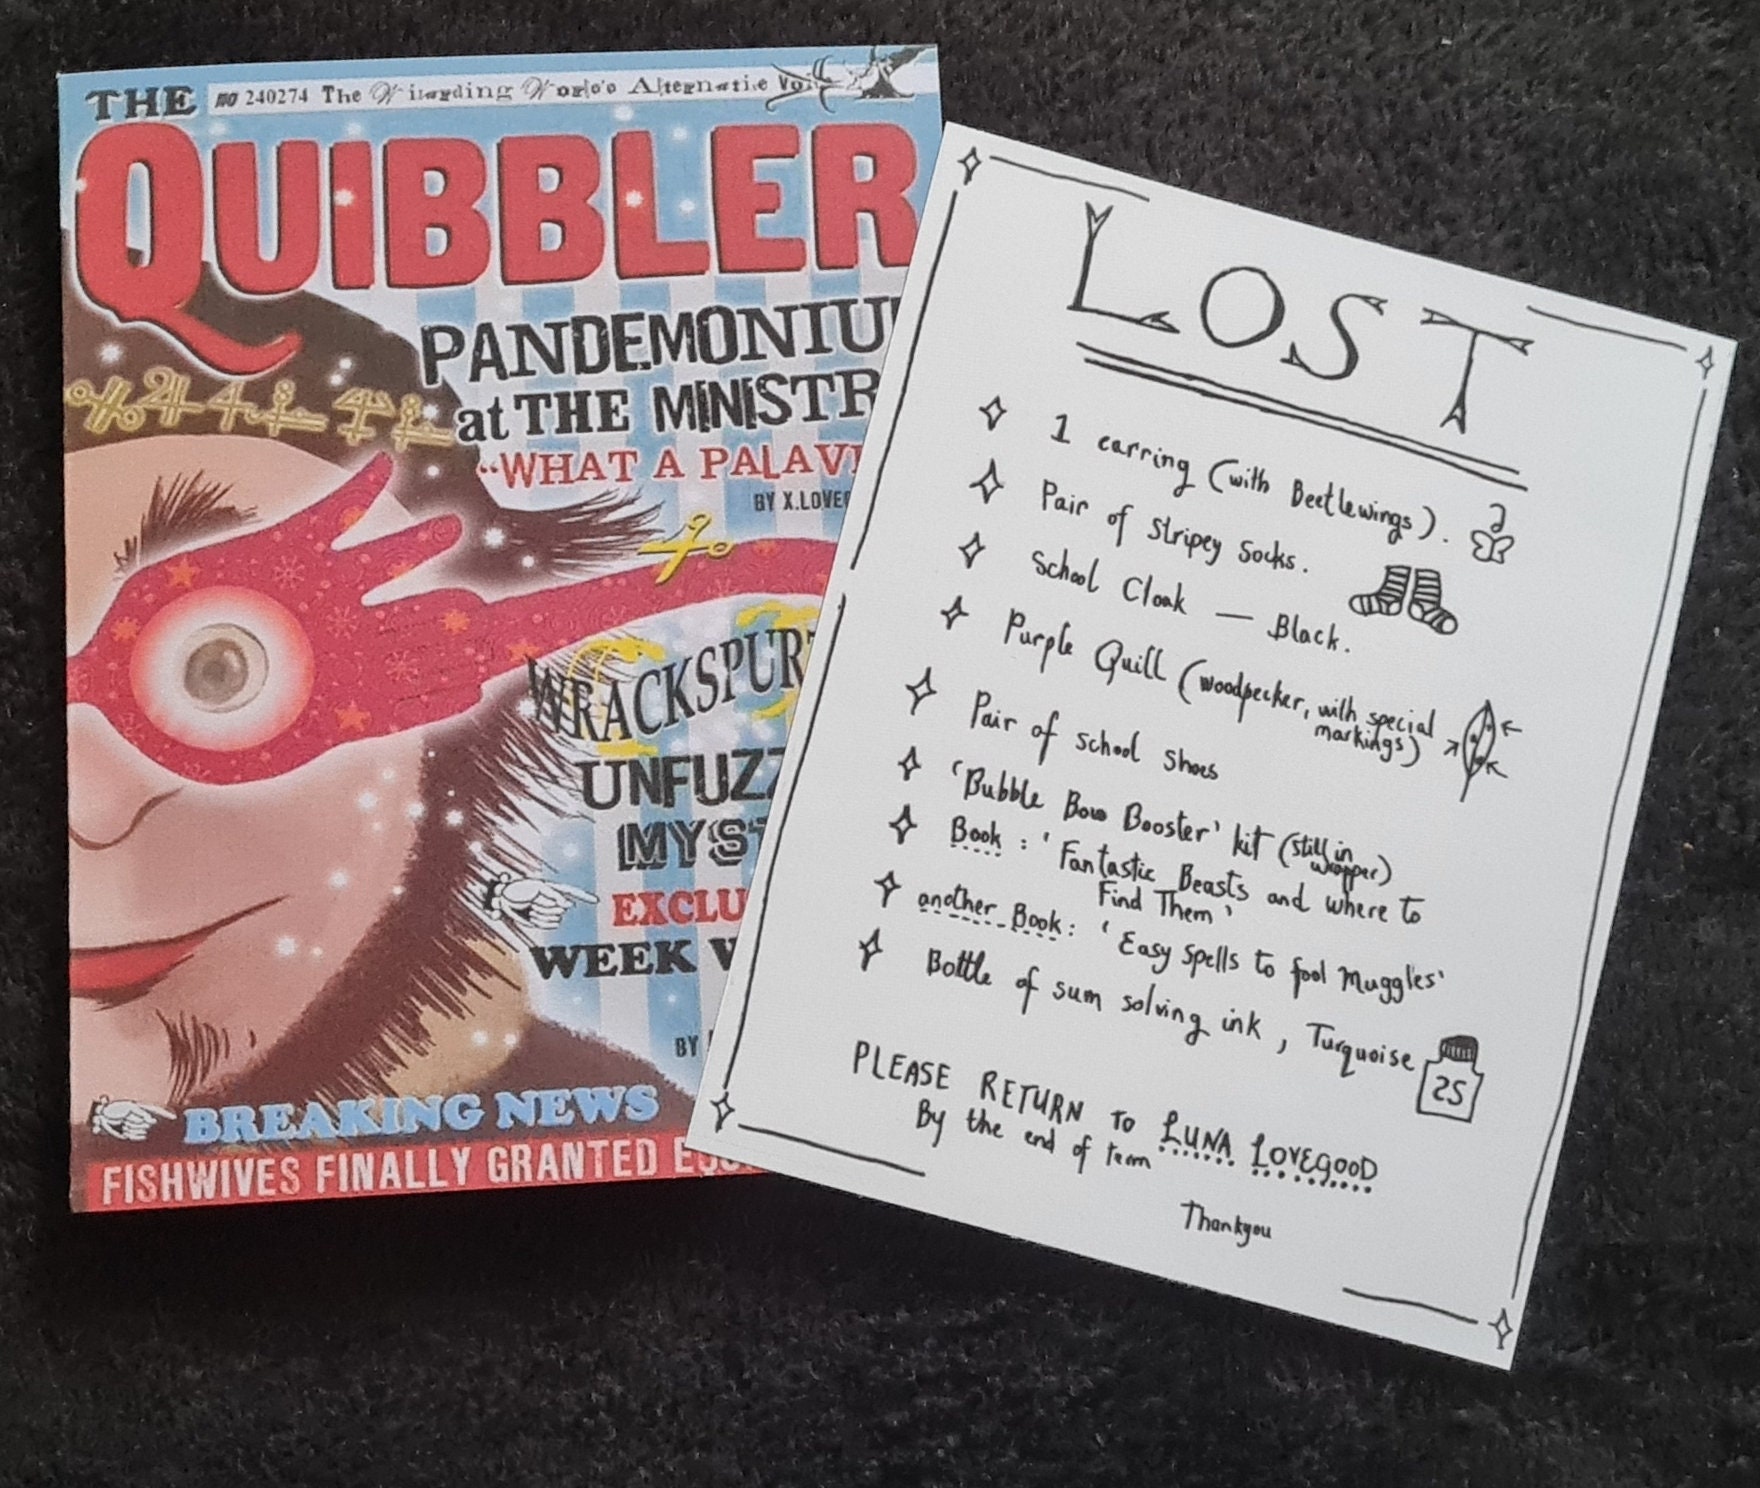 THE
no 240274 The Wizarding World's Alternative
QUIBBLER
PANDEMONIU
at THE MINISTR
"WHAT A PALAV
BY X.LOVE
WRACKSPUR
UNFUZZ
MYS
EXCLU
WEEK
BY
BREAKING NEWS
FISHWIVES FINALLY GRANTED
LOST
1 earring (with Beetlewings).
Pair of Stripey Socks.
School Cloak — Black.
Purple Quill (woodpecker, with special
markings)
Pair of school shoes
'Bubble Bow Booster' kit (still in
wrapper)
Book : 'Fantastic Beasts and where to
Find Them'
another Book : 'Easy Spells to fool Muggles'
Bottle of sum solving ink, Turquoise
PLEASE RETURN TO LUNA LOVEGOOD
By the end of term
Thankyou